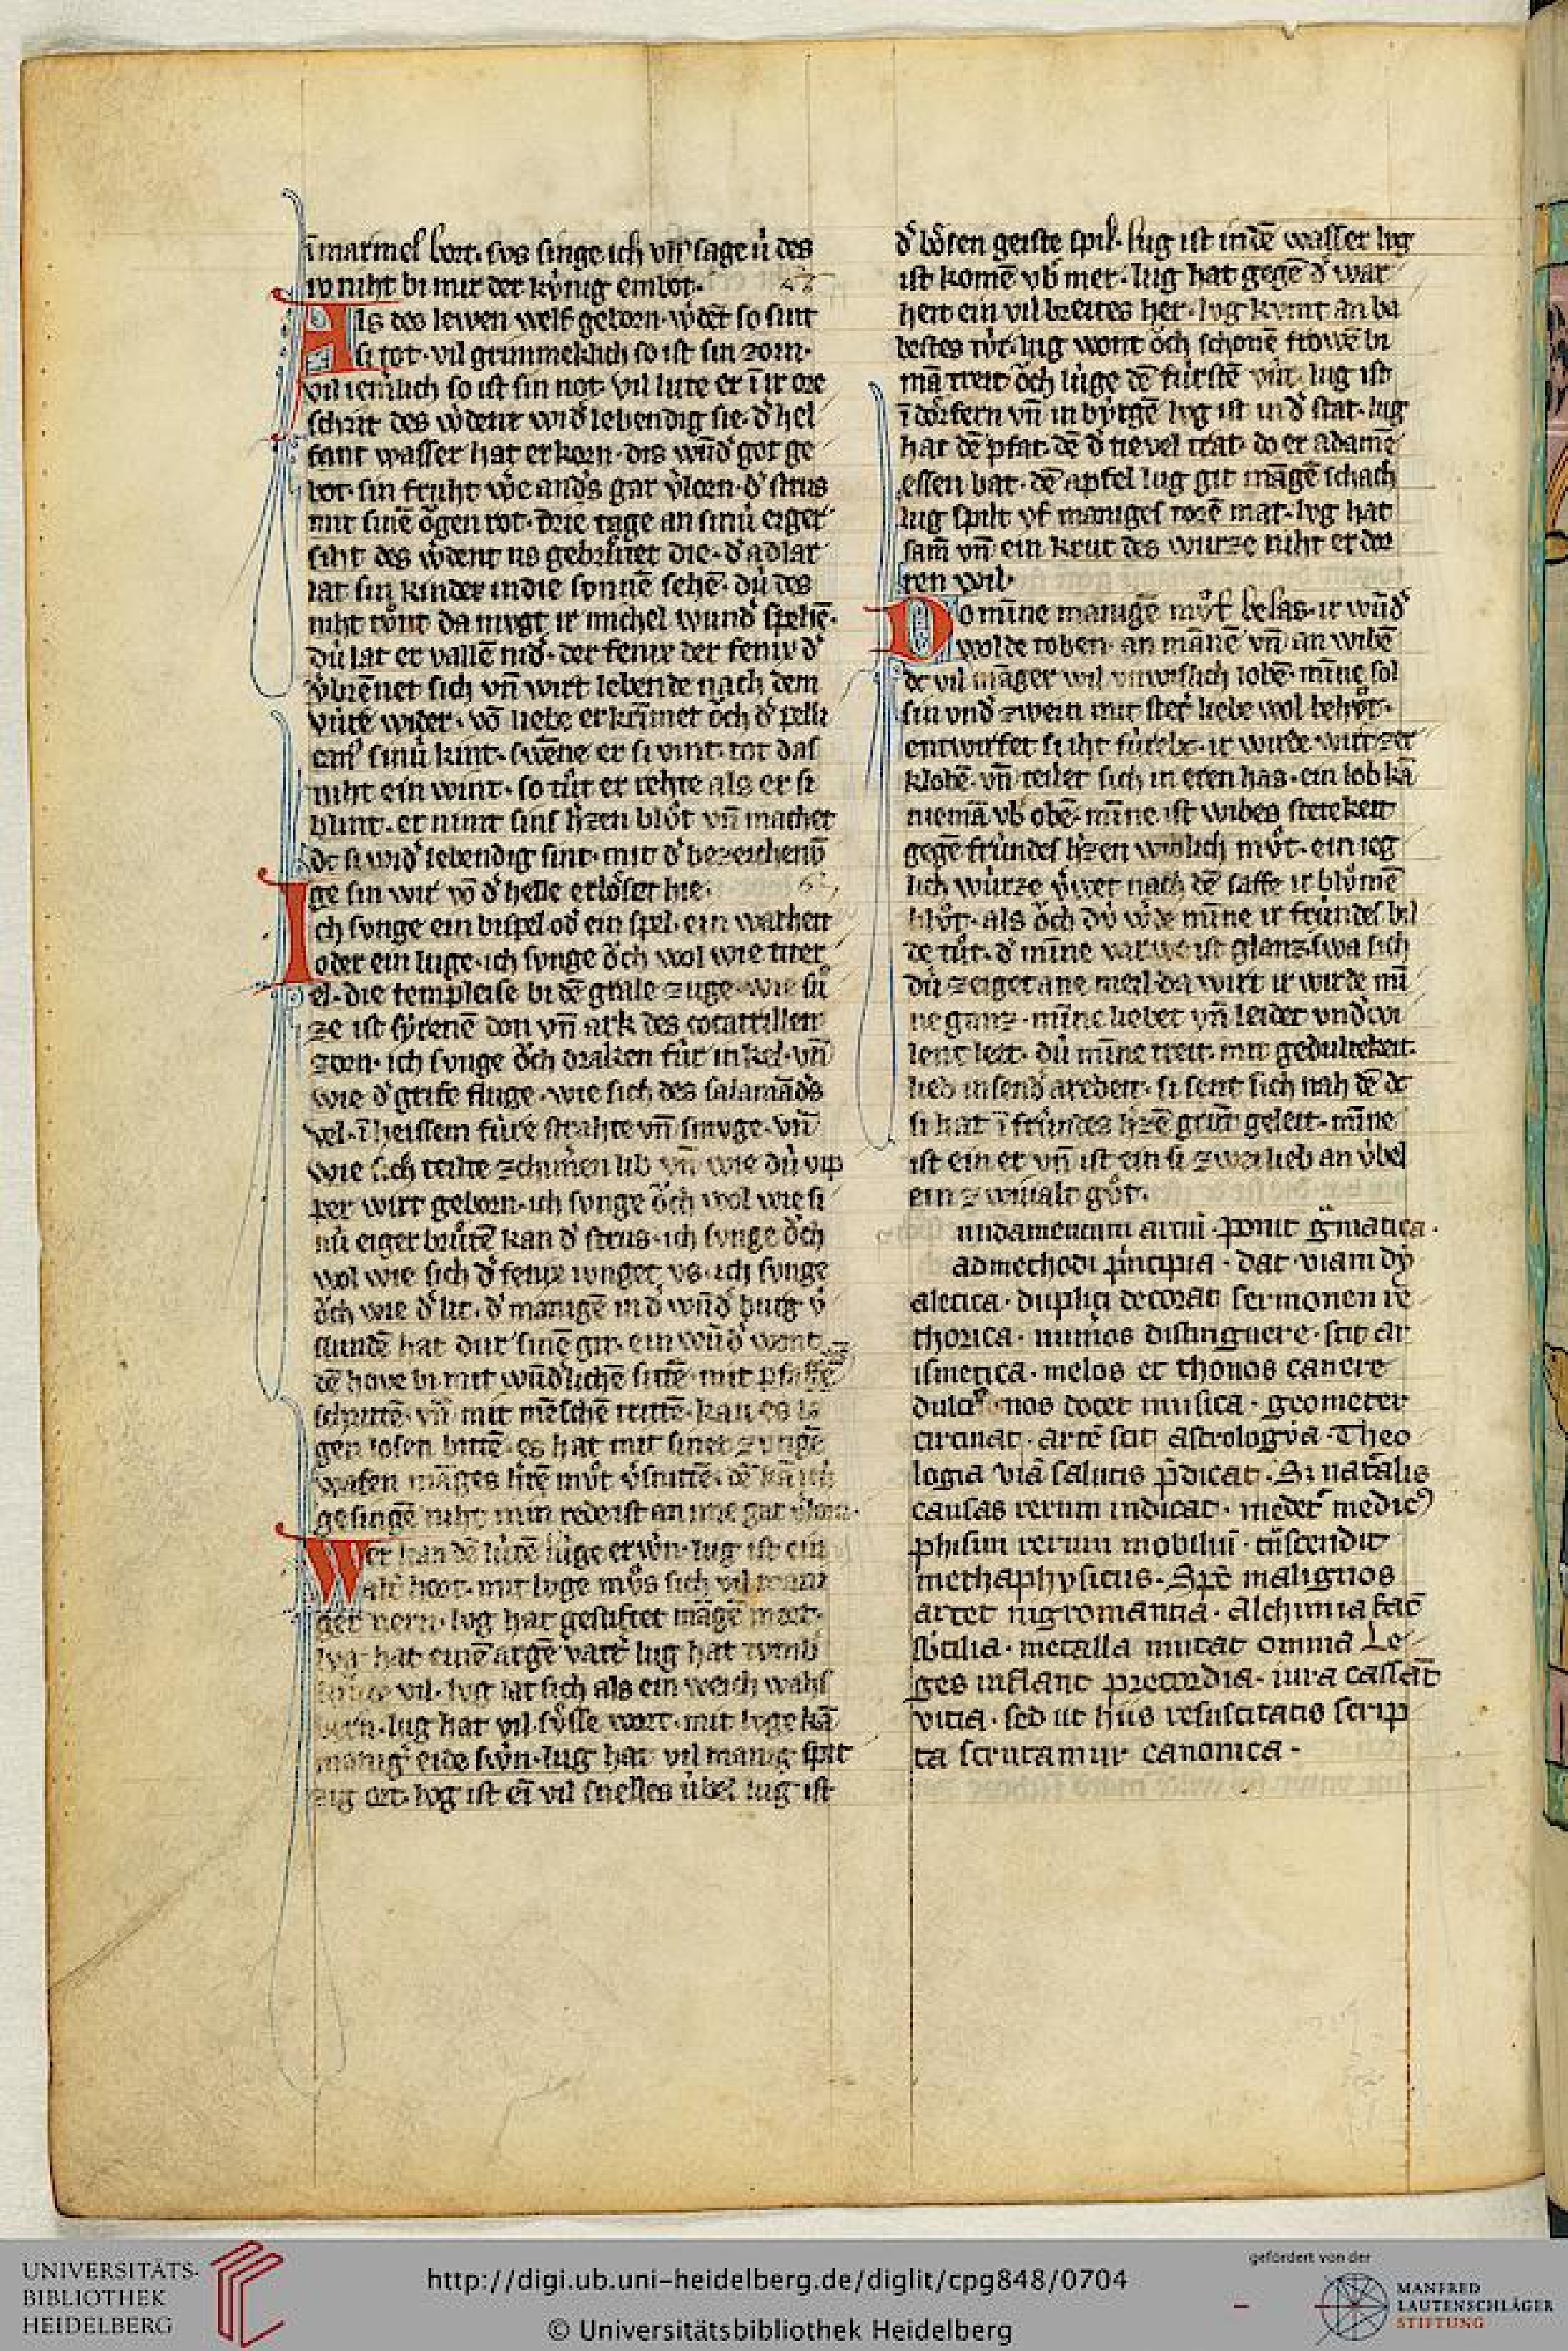 ī marmel bort. svs singe ich vn̄ sage ú des
iv niht bi mir der kv́nig embot.
Als des lewen welf geborn. wˢdēt so sint
si tot. vil grimmeklich so ist sin zorn.
vil iemˢlich so ist sin not. vil lute er ī ir ore
schrit des wˢdent widˢ lebendig sie. dˢ hel
fant wasser hat erkorn. dis wn̄dˢ got ge
bot. sin fruht wˢe andˢs gar vˢlorn. dˢ strus
mit sinē ógen rot. drie tage an sinú eiger
siht des wˢdent us gebrútet die. dˢ adlar
lat sin kinder in die sonnē sehē. dú des
niht tůnt da mvgt ir michel wundˢ spehē.
dú lat er vallē nidˢ. der fenix der fenix dˢ
vˢbrēnet sich vn̄ wirt lebende nach dem
vúre wider. vō liebe erkrīmet óch dˢ pelli
canˢ sinú kint. swēne er si vint. tot das
niht ein wint. so tůt er rehte als er si
blint. er nimt sins hˢzen blůt vn̄ machet
dc si widˢ lebendig sint. mit dˢ bezeichenū
ge sin wir vō dˢ helle erlôset hie.
Ich svnge ein bispel odˢ ein spel. ein warheit
oder ein luge. ich svnge óch wol wie titer
el. die templeise bi dē grale zuge. wie sů
ze ist sýrenē don vn̄ ark des cocatrillen
zorn. ich svnge óch draken fúr in kel. vn̄
wie dˢ grife fluge. wie sich des salamādˢs
vel. ī heissem fúre strahte vn̄ smvge. vn̄
wie sich teilte zchimeˢn lib vn̄ wie dú vip
per wirt geborn. ich svnge óch wol wie si
nú eiger brůtē kan dˢ strus. ich svnge óch
wol wie sich dˢ fenix ivnget vs. ich svnge
óch wie dˢ lit. dˢ manigē in dˢ wn̄dˢ burg vˢ
slundē hat dur sinē git. ein wn̄dˢ wont
dē hove bi mit wn̄dˢlichē sittē. mit pfaffē
schrittē. vn̄ mit mēschē trittē. kan es la
gen losen bittē. es hat mit siner zungē
wafen māges hˢrē můt vˢsnittē. dē kā ich
gesingē niht min rede ist an ime gar vˢlorn.
Wer kan dē lútē lúge erwˢn. lug ist ein
hort. mit lvge můs sich vil mani
ger nern. lvg hat gestiftet māgē mort.
lvg hat einē argē vatˢ lug hat
vil. lvg lat sich als ein weich wahs
bern. lug hat vil sv́sse wort. mit lvge kā
manigˢ eide swˢn. lug hat vil manig spit
zig ort. lvg ist eī vil snelles úbel lug ist
dˢ bôsen geiste spil. lug ist in dē wasser lvg
ist komē vbˢ mer. lug hat gegē dˢ war
heit ein vil breites her. lvg kvmt an ba
bestes túr. lug wont óch schonē frowē bi
mā treit óch lúge dē fúrstē vúr. lug ist
ī dôrfern vn̄ in býrgē lvg ist in dˢ stat. lug
hat dē pfat. dē dˢ tievel trat. do er adamē
essen bat. dē apfel lug git māgē schach
lug spilt vf maniges rozē mat. lvg hat
sam̄ vn̄ ein krut des wurze niht erdor
ren wil.
Do mīne manigē můt besas. ir wn̄dˢ
wolde toben. an mānē vn̄ an wibē
dc vil māger wil vnwislich loben. mīne sol
sin vndˢ zwein mit stetˢ liebe wol behůt.
entwirfet si iht fúrebc. ir wirde wirt zer
klobē. vn̄ teilet sich in eren has. ein lob kā
niemā vbˢ obē. mīne ist wibes stetekeit
gegē frúndes hˢzen wiblich můt. ein ieg
lich wurze v́wet nach dē saffe ir blůmē
blůt. als óch dú wˢde mīne ir frúndes bil
de tůt. dˢ mīne varwe ist glanz. swa sich
dú zeiget ane meil da wirt ir wirde mī
ne ganz. mīne liebet vn̄ leidet vndˢ wi
lent leit. dú mīne treit. mit gedultekeit.
lieb in sendˢ arebeit. si sent sich nah dē dc
si hat ī frúndes hˢzē grūt geleit. mīne
ist ein er vn̄ ist ein si zwei lieb an v́bel
ein zwivalt gůt.
undamentum artiū. ponit gˢmatica.
ad methodi pˢncipia. dat viam dy
aletica. duplici decorat sermonen re
thorica. numˢos distinguere. scit ar
ismetica. melos et thonos canere
dulcitˢ nos docet musica. geometer
circinat. artē scit astrologya. Theo
logia viā salutis p̄dicat. Si natˢalis
causas rerum indicat. medetˢ medicꝰ
phisim rerum mobiliū. tn̄scendit
methaphysicus. Spē malignos
artet nigromantia. alchimia fac̄
sb̄tilia. metalla mutat omnia Le
ges inflant precordia. iura cassāt
vitia. sed ut hus resuscitatis scrip
ta scrutamur canonica.
UNIVERSITÄTS-
BIBLIOTHEK
HEIDELBERG
http://digi.ub.uni-heidelberg.de/diglit/cpg848/0704
© Universitätsbibliothek Heidelberg
gefördert von der
MANFRED
LAUTENSCHLÄGER
STIFTUNG